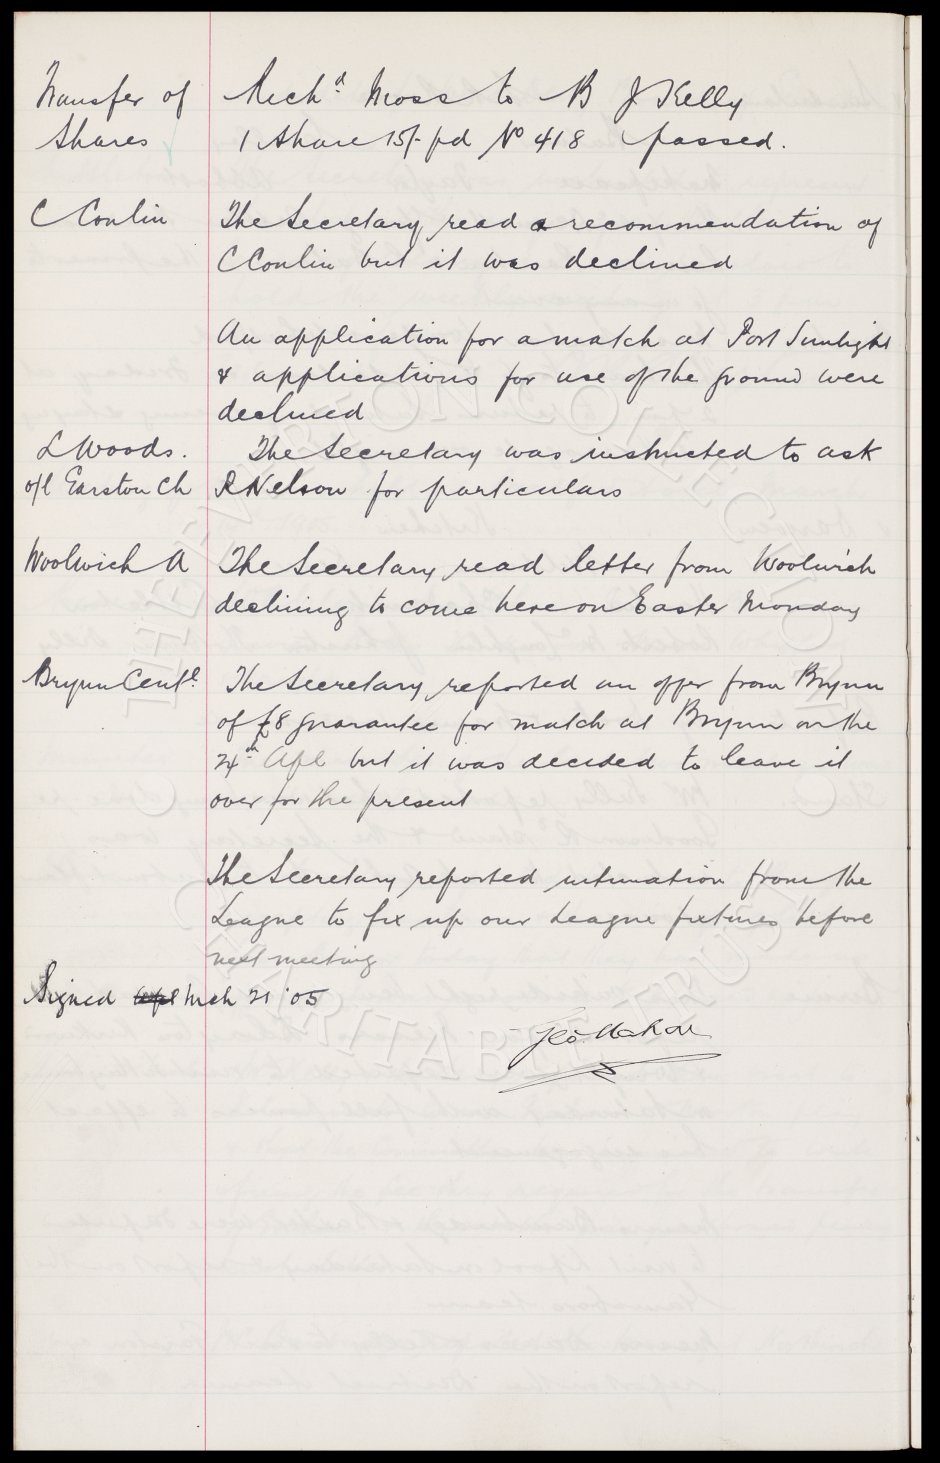 Transfer of Richd. Moss to B J Kelly
Shares 1 Share 15/- pd No 418 passed.
C Conlin The Secretary read a recommendation of
C Conlin but it was declined
An application for a match at Port Sunlight
& applications for use of the ground were
declined
L Woods. The Secretary was instructed to ask
o/l Earston Ch R Nelson for particulars
Woolwich A The Secretary read letter from Woolwich
declining to come here on Easter Monday
Brynn Centl. The Secretary reported an offer from Brynn
of £8 guarantee for match at Brynn on the
24th Apl but it was decided to leave it
over for the present
The Secretary reported intimation from the
League to fix up our League fixtures before
next meeting
Signed Mch 21 '05
Geo. Mahon
THE EVERTON COLLECTION
CHARITABLE TRUST